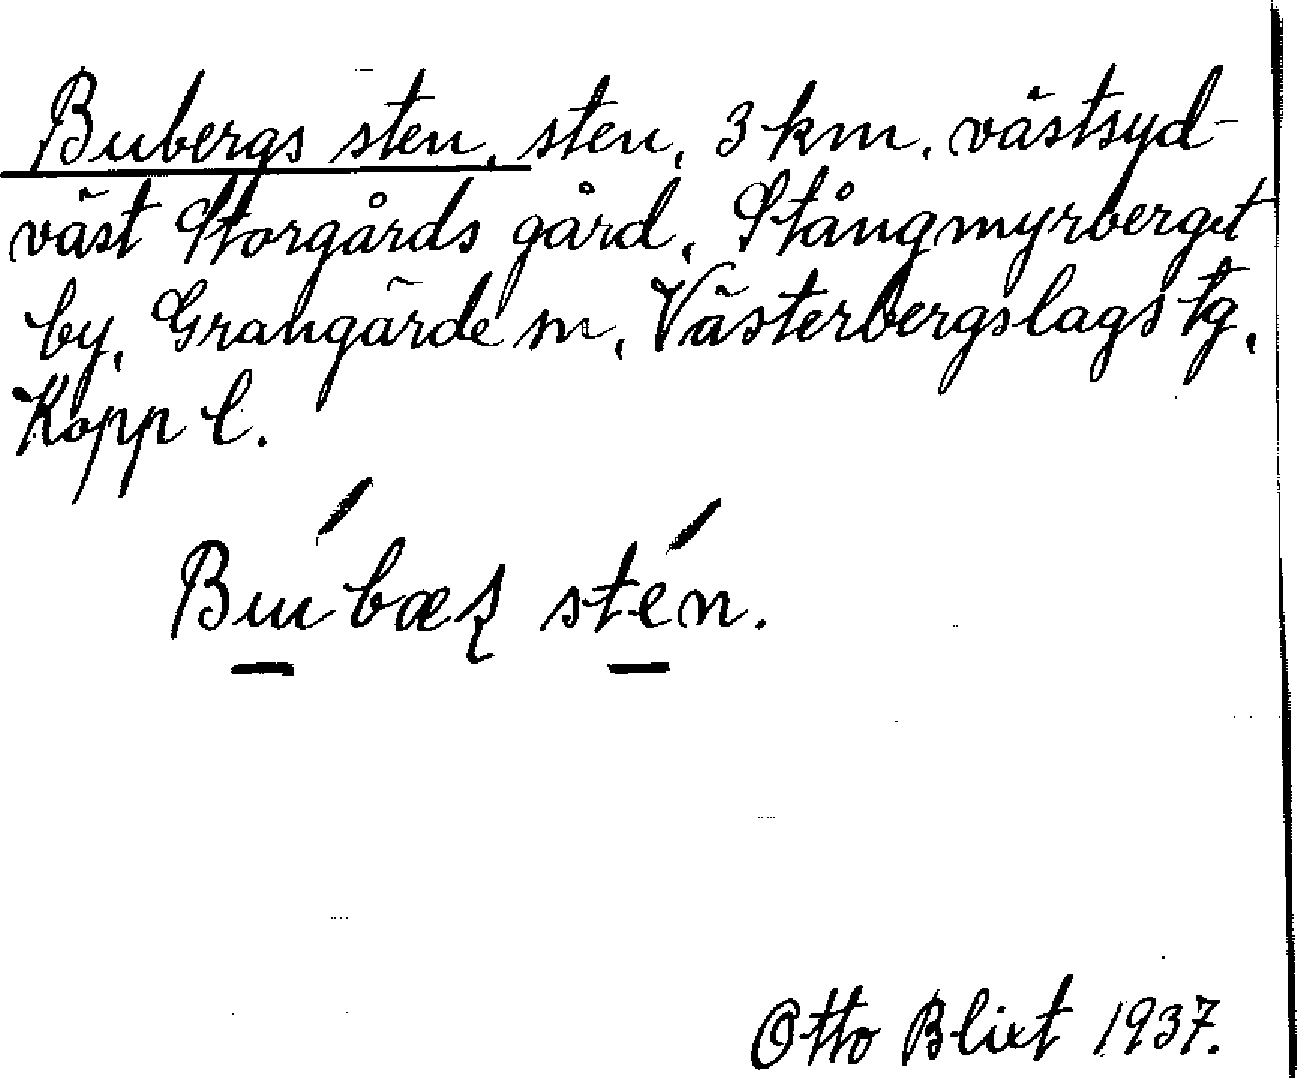 Bubergs sten, sten, 3 km. västsyd-
väst Storgårds gård, Stångmyrberget
by, Grangärde sn, Västerbergslags tg,
Kopp l.
Búbæʂ stén.
Otto Blixt 1937.